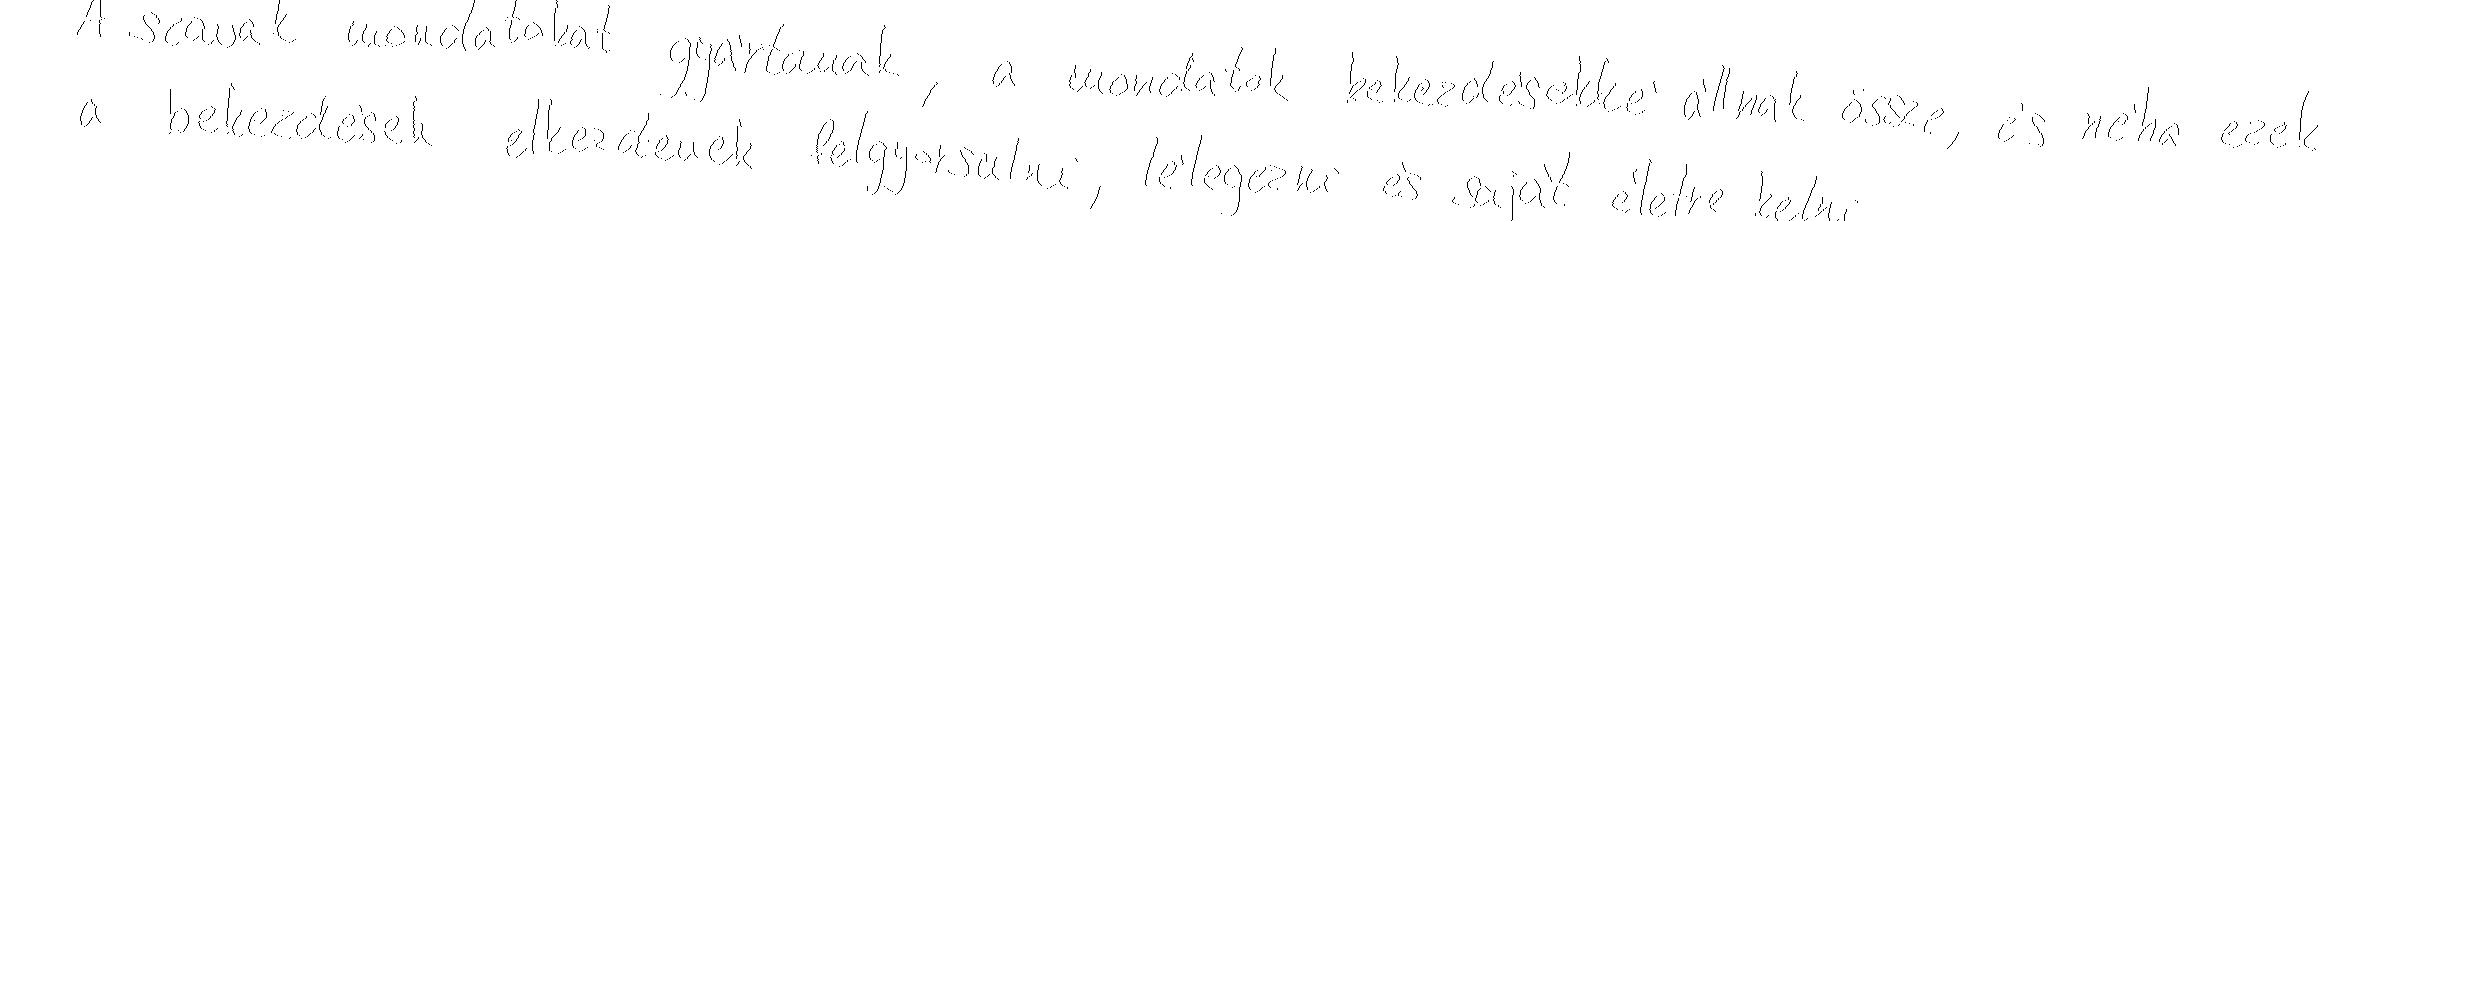 A szavak mondatokat gyártanak, a mondatok bekezdésekké állnak össze, és néha ezek
a bekezdések elkezdenek felgyorsulni, lélegezni és saját életre kelni